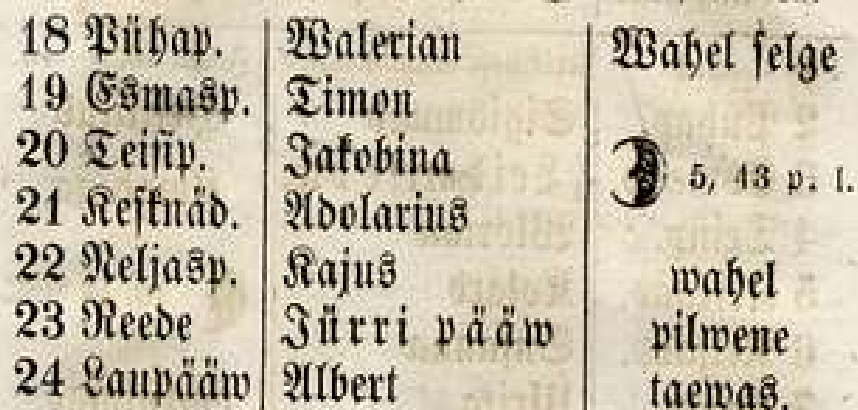 18 Pühap. Walerian Wahel selge
19 Esmasp. Timon
20 Teisip. Jakobina 5, 43 p. l.
21 Kesknäd. Adolarius
22 Neljasp. Kajus wahel
23 Reede Jürri pääw pilwene
24 Laupääw Albert taewas.